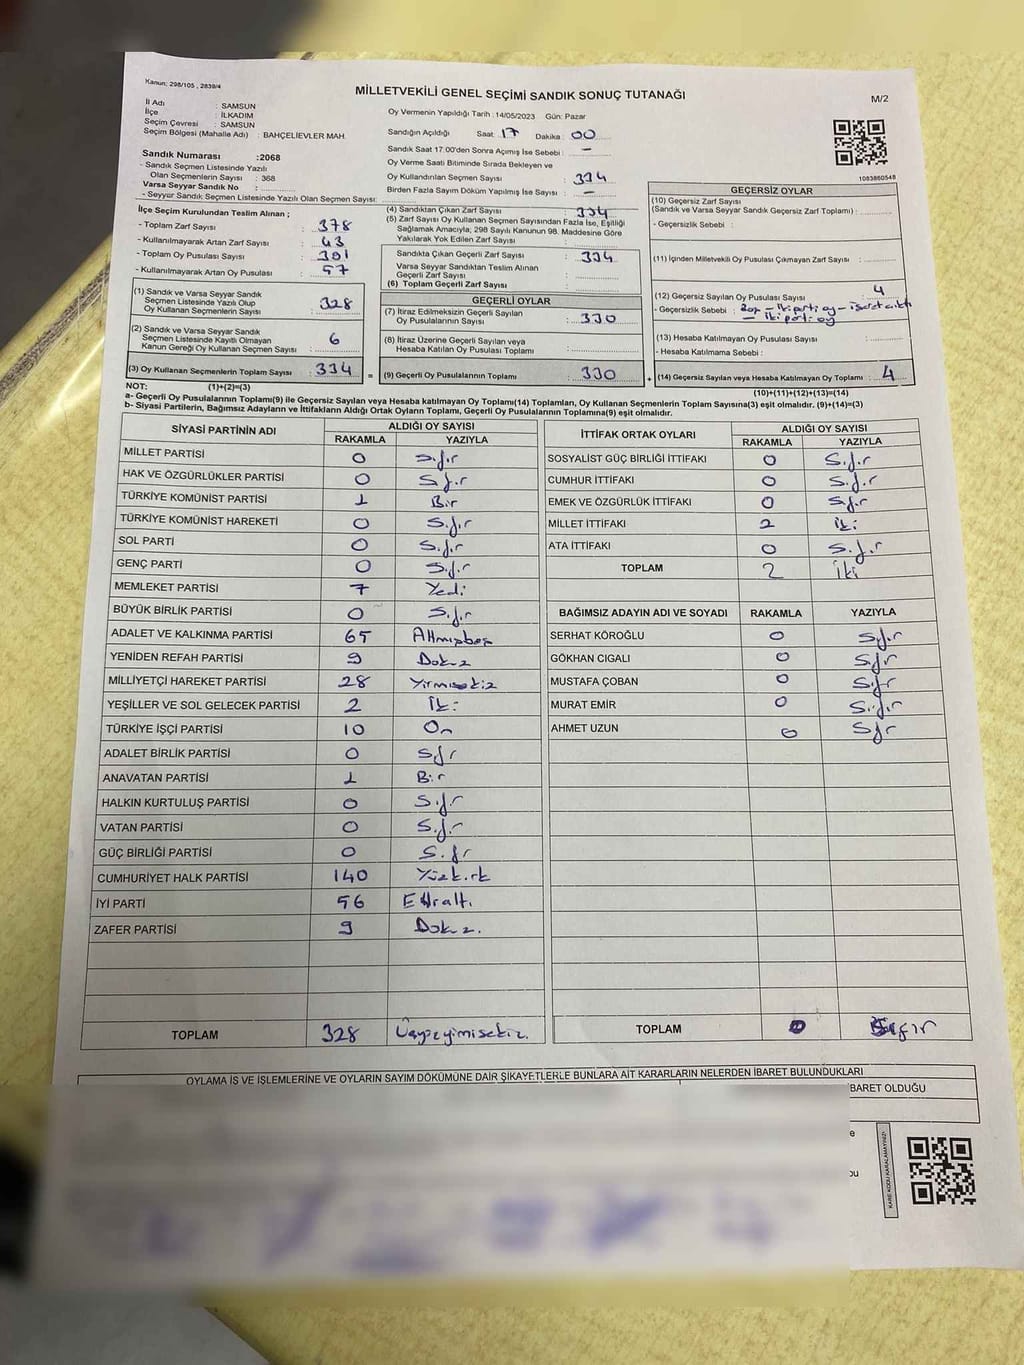 Kanun: 298/105 , 2839/4
MİLLETVEKİLİ GENEL SEÇİMİ SANDIK SONUÇ TUTANAĞI
M/2
İl Adı : SAMSUN
İlçe : İLKADIM
Seçim Çevresi : SAMSUN
Seçim Bölgesi (Mahalle Adı) : BAHÇELİEVLER MAH.
Sandık Numarası :2068
- Sandık Seçmen Listesinde Yazılı
Olan Seçmenlerin Sayısı : 368
Varsa Seyyar Sandık No :
- Seyyar Sandık Seçmen Listesinde Yazılı Olan Seçmen Sayısı:
Oy Vermenin Yapıldığı Tarih : 14/05/2023 Gün: Pazar
Sandığın Açıldığı Saat 17 Dakika : 00
Sandık Saat 17:00'den Sonra Açımış İse Sebebi : -
Oy Verme Saati Bitiminde Sırada Bekleyen ve
Oy Kullandırılan Seçmen Sayısı : 334
Birden Fazla Sayım Döküm Yapılmış İse Sayısı : -
1083860548
İlçe Seçim Kurulundan Teslim Alınan ;
- Toplam Zarf Sayısı : 378
- Kullanılmayarak Artan Zarf Sayısı : 43
- Toplam Oy Pusulası Sayısı : 391
- Kullanılmayarak Artan Oy Pusulası : 57
(1) Sandık ve Varsa Seyyar Sandık
Seçmen Listesinde Yazılı Olup
Oy Kullanan Seçmenlerin Sayısı : 328
(2) Sandık ve Varsa Seyyar Sandık
Seçmen Listesinde Kayıtlı Olmayan
Kanun Gereği Oy Kullanan Seçmen Sayısı : 6
(3) Oy Kullanan Seçmenlerin Toplam Sayısı : 334
(4) Sandıktan Çıkan Zarf Sayısı : 334
(5) Zarf Sayısı Oy Kullanan Seçmen Sayısından Fazla İse, Eşitliği
Sağlamak Amacıyla; 298 Sayılı Kanunun 98. Maddesine Göre
Yakılarak Yok Edilen Zarf Sayısı :
Sandıkta Çıkan Geçerli Zarf Sayısı : 334
Varsa Seyyar Sandıktan Teslim Alınan
Geçerli Zarf Sayısı :
(6) Toplam Geçerli Zarf Sayısı :
GEÇERLİ OYLAR
(7) İtiraz Edilmeksizin Geçerli Sayılan
Oy Pusulalarının Sayısı : 330
(8) İtiraz Üzerine Geçerli Sayılan veya
Hesaba Katılan Oy Pusulası Toplamı :
= (9) Geçerli Oy Pusulalarının Toplamı : 330
GEÇERSİZ OYLAR
(10) Geçersiz Zarf Sayısı
(Sandık ve Varsa Seyyar Sandık Geçersiz Zarf Toplamı) :
- Geçersizlik Sebebi :
(11) İçinden Milletvekili Oy Pusulası Çıkmayan Zarf Sayısı :
(12) Geçersiz Sayılan Oy Pusulası Sayısı : 4
- Geçersizlik Sebebi : iki parti oy -
- iki parti oy
(13) Hesaba Katılmayan Oy Pusulası Sayısı :
- Hesaba Katılmama Sebebi :
+ (14) Geçersiz Sayılan veya Hesaba Katılmayan Oy Toplamı : 4
NOT: (1)+(2)=(3)
(10)+(11)+(12)+(13)=(14)
a- Geçerli Oy Pusulaları Toplamı(9) ile Geçersiz Sayılan veya Hesaba Katılmayan Oy Toplamı(14) Toplamları, Oy Kullanan Seçmenlerin Toplam Sayısına(3) eşit olmalıdır. (9)+(14)=(3)
b- Siyasi Partilerin, Bağımsız Adayların ve İttifakların Aldığı Ortak Oyların Toplamı, Geçerli Oy Pusulalarının Toplamına(9) eşit olmalıdır.
SİYASİ PARTİNİN ADI
ALDIĞI OY SAYISI
RAKAMLA YAZIYLA
MİLLET PARTİSİ 0 Sıfır
HAK VE ÖZGÜRLÜKLER PARTİSİ 0 Sıfır
TÜRKİYE KOMÜNİST PARTİSİ 1 Bir
TÜRKİYE KOMÜNİST HAREKETİ 0 Sıfır
SOL PARTİ 0 Sıfır
GENÇ PARTİ 0 Sıfır
MEMLEKET PARTİSİ 7 Yedi
BÜYÜK BİRLİK PARTİSİ 0 Sıfır
ADALET VE KALKINMA PARTİSİ 65 Altmışbeş
YENİDEN REFAH PARTİSİ 9 Dokuz
MİLLİYETÇİ HAREKET PARTİSİ 28 Yirmisekiz
YEŞİLLER VE SOL GELECEK PARTİSİ 2 İki
TÜRKİYE İŞÇİ PARTİSİ 10 On
ADALET BİRLİK PARTİSİ 0 Sıfır
ANAVATAN PARTİSİ 1 Bir
HALKIN KURTULUŞ PARTİSİ 0 Sıfır
VATAN PARTİSİ 0 Sıfır
GÜÇ BİRLİĞİ PARTİSİ 0 Sıfır
CUMHURİYET HALK PARTİSİ 140 Yüzkırk
İYİ PARTİ 56 Ellialtı
ZAFER PARTİSİ 9 Dokuz.
TOPLAM 328 Üçyüzyirmisekiz.
İTTİFAK ORTAK OYLARI
ALDIĞI OY SAYISI
RAKAMLA YAZIYLA
SOSYALİST GÜÇ BİRLİĞİ İTTİFAKI 0 Sıfır
CUMHUR İTTİFAKI 0 Sıfır
EMEK VE ÖZGÜRLÜK İTTİFAKI 0 Sıfır
MİLLET İTTİFAKI 2 İki
ATA İTTİFAKI 0 Sıfır
TOPLAM 2 İki
BAĞIMSIZ ADAYIN ADI VE SOYADI RAKAMLA YAZIYLA
SERHAT KÖROĞLU 0 Sıfır
GÖKHAN CIGALI 0 Sıfır
MUSTAFA ÇOBAN 0 Sıfır
MURAT EMİR 0 Sıfır
AHMET UZUN 0 Sıfır
TOPLAM 0 Sıfır
OYLAMA İŞ VE İŞLEMLERİNE VE OYLARIN SAYIM DÖKÜMÜNE DAİR ŞİKAYETLERLE BUNLARA AİT KARARLARIN NELERDEN İBARET BULUNDUKLARI
İBARET OLDUĞU
KARE KODU KARALAMAYINIZ!